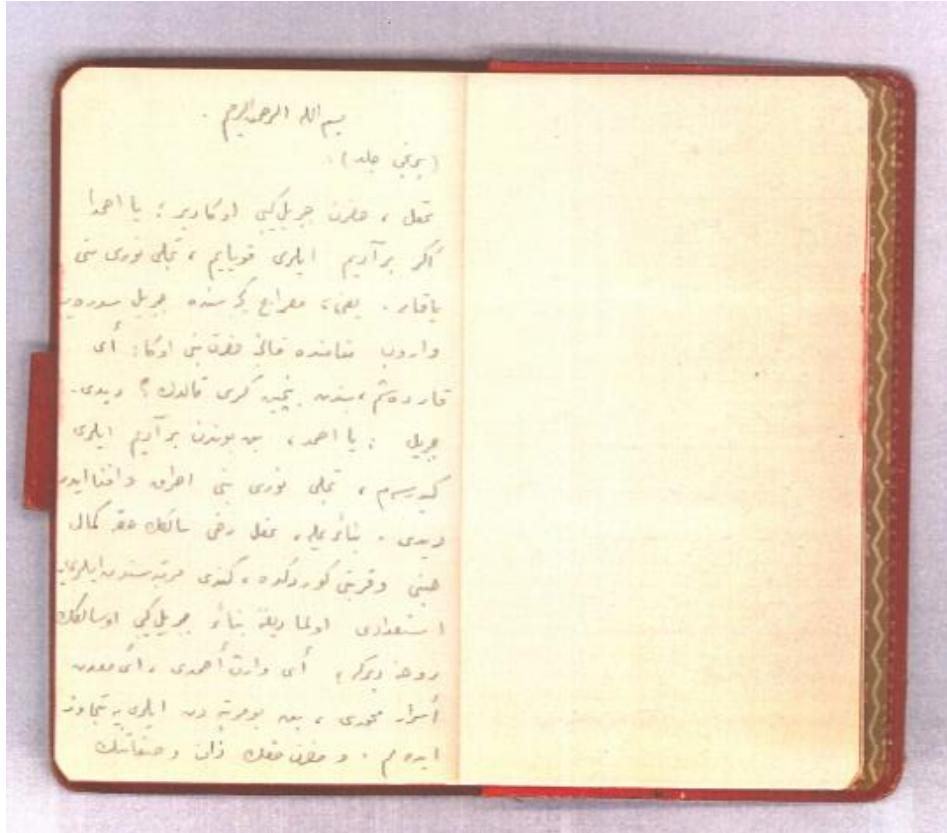 بسم الله الرحمن الرحيم .
(برنجى جلد) .
عقل ، حضرت جبريل كبى اوكا دير : يا احمد !
اگر بر آديم ايلرى قويايم ، تجلى نورى بنى
ياقار . يعنى ، معراج كيجه سنده جبريل سدره يه
واروب مقامنده قالنجه حضرت نبى اوكا : أى
قارده شم ، بندن نيچين كرى قالدك ؟ ديدى .
جبريل : يا احمد ، بن بوندن بر آديم ايلرى
كيدرسه م ، تجلى نورى بنى احراق و افنا ايدر
ديدى . بناءً عليه ، عقل دخى سالكك حقه كمال
حبنى و قربتنى كوردكده ، كندى مرتبه سندن ايلرى يه
استعدادى اولماديغنه بناءً جبريل كبى او سالكك
روحنه ديركه ؛ أى وارث أحمدى ، أى معدن
أسرار محمدى ، بن بو مرتبه دن ايلرى يه تجاوز
ايده مم . و حضرت حقك ذات و صفاتنك